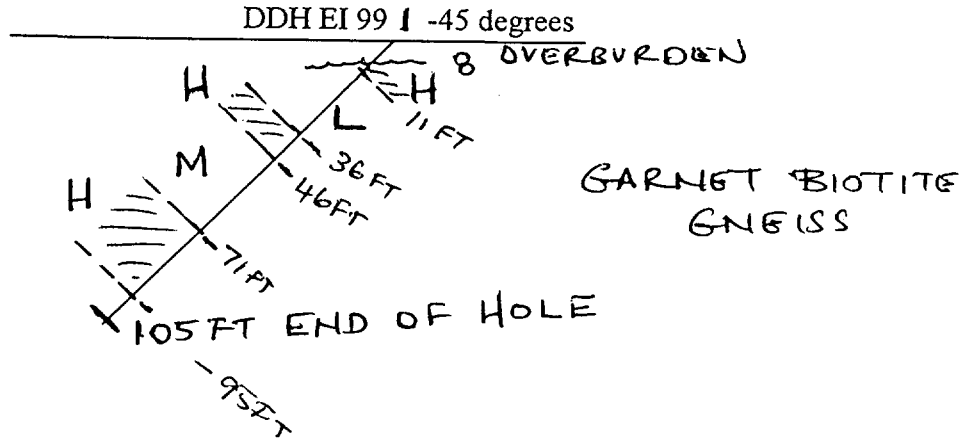 DDH EI 99 1 -45 degrees
8 OVERBURDEN
H
H
11 FT
L
36 FT
M
46 FT
GARNET BIOTITE
GNEISS
H
71 FT
105 FT END OF HOLE
- 95 FT